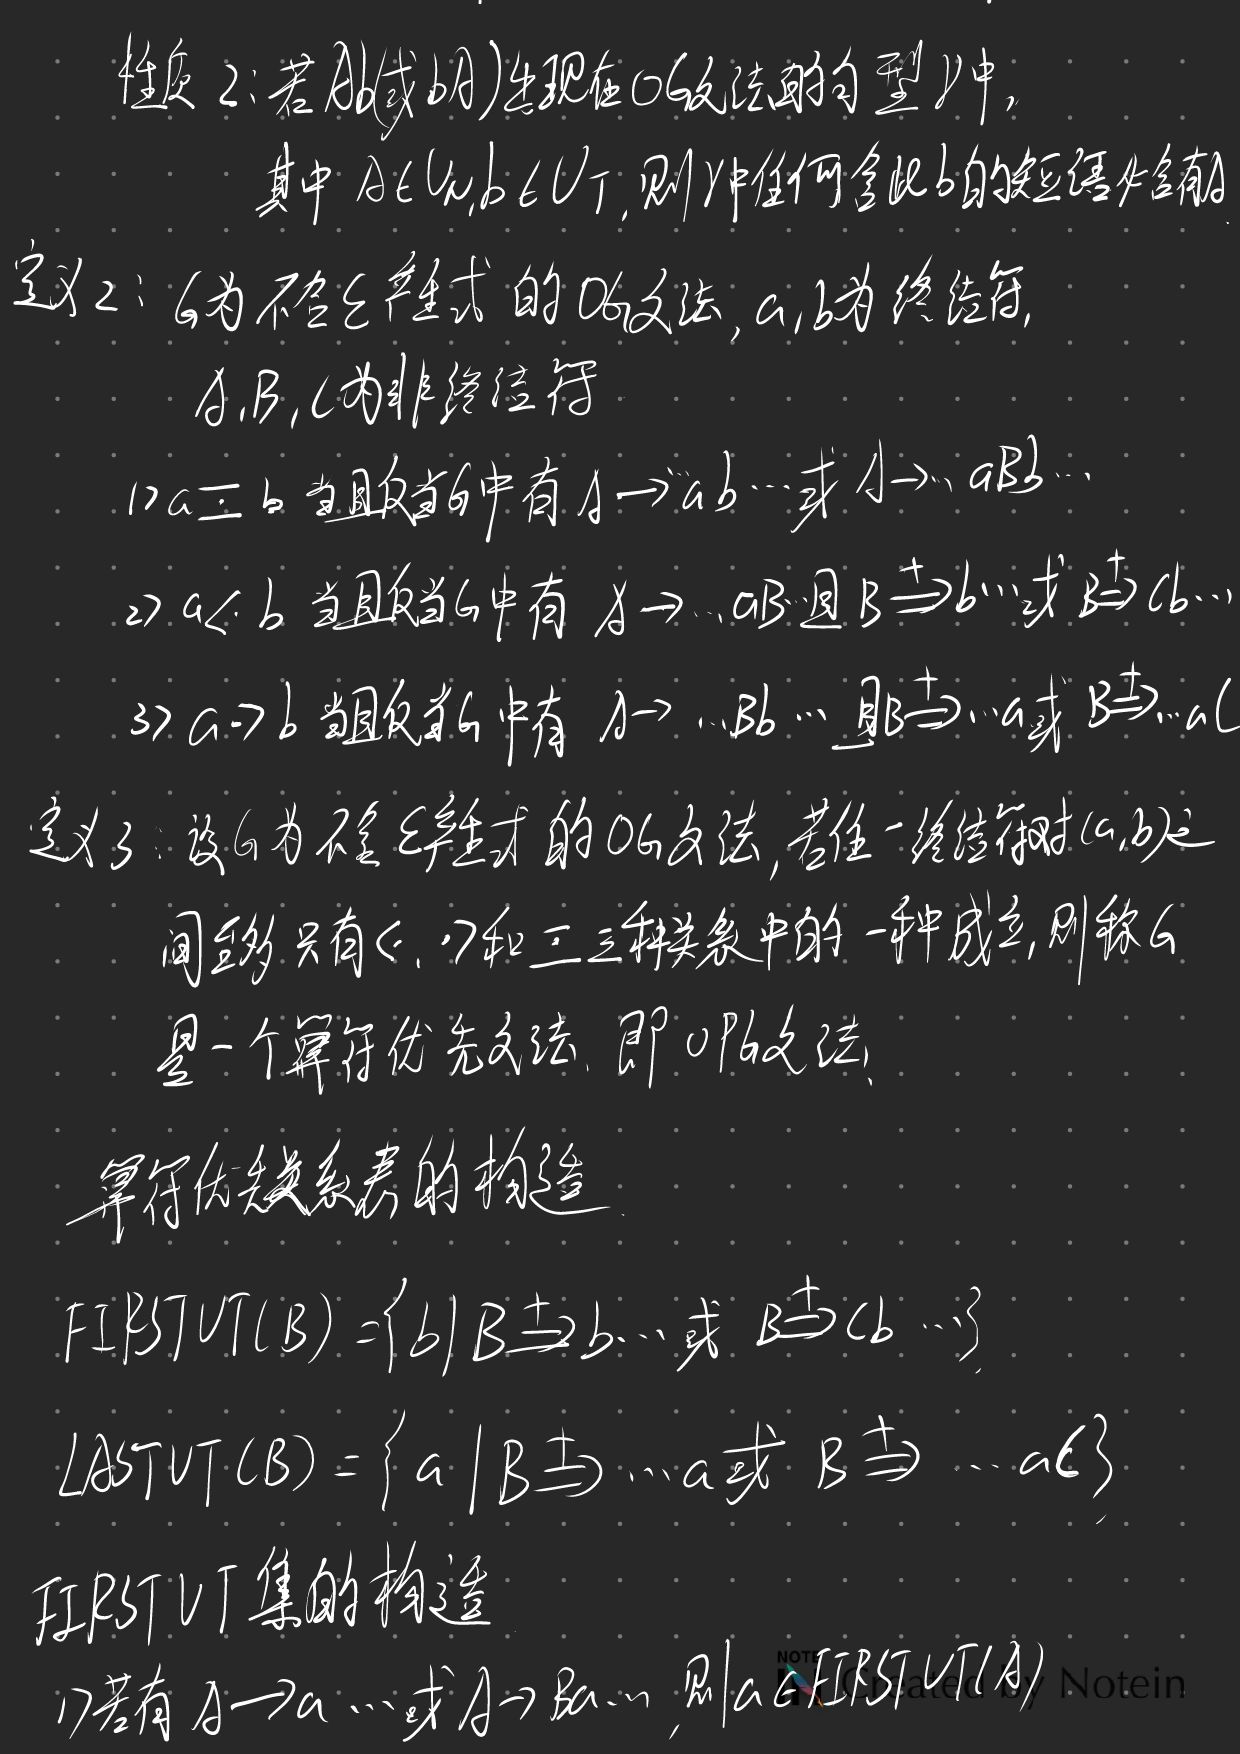 性质2:若Ab(或bA)出现在OG文法的句型γ中,
其中A∈VN,b∈VT,则γ中任何含此b的短语必含有A.
定义2: G为不含ε产生式的OG文法,a,b为终结符,
A,B,C为非终结符
1> a ≐ b 当且仅当G中有 A→…ab…或 A→…aBb…
2> a<· b 当且仅当G中有 A→…aB…且B⇒+b…或B⇒+Cb…
3> a ·> b 当且仅当G中有 A→…Bb…且B⇒+…a或B⇒+…aC
定义3: 设G为不含ε产生式的OG文法,若任一终结符对(a,b)之
间至多只有<·、·>和≐三种关系中的一种成立,则称G
是一个算符优先文法、即OPG文法.
算符优先关系表的构造
FIRSTVT(B)={b|B⇒+b…或 B⇒+Cb…}
LASTVT(B)={a|B⇒+…a或 B⇒+…aC}
FIRSTVT集的构造
1>若有A→a…或A→Ba…,则a∈FIRSTVT(A)
NOTE Created by Notein